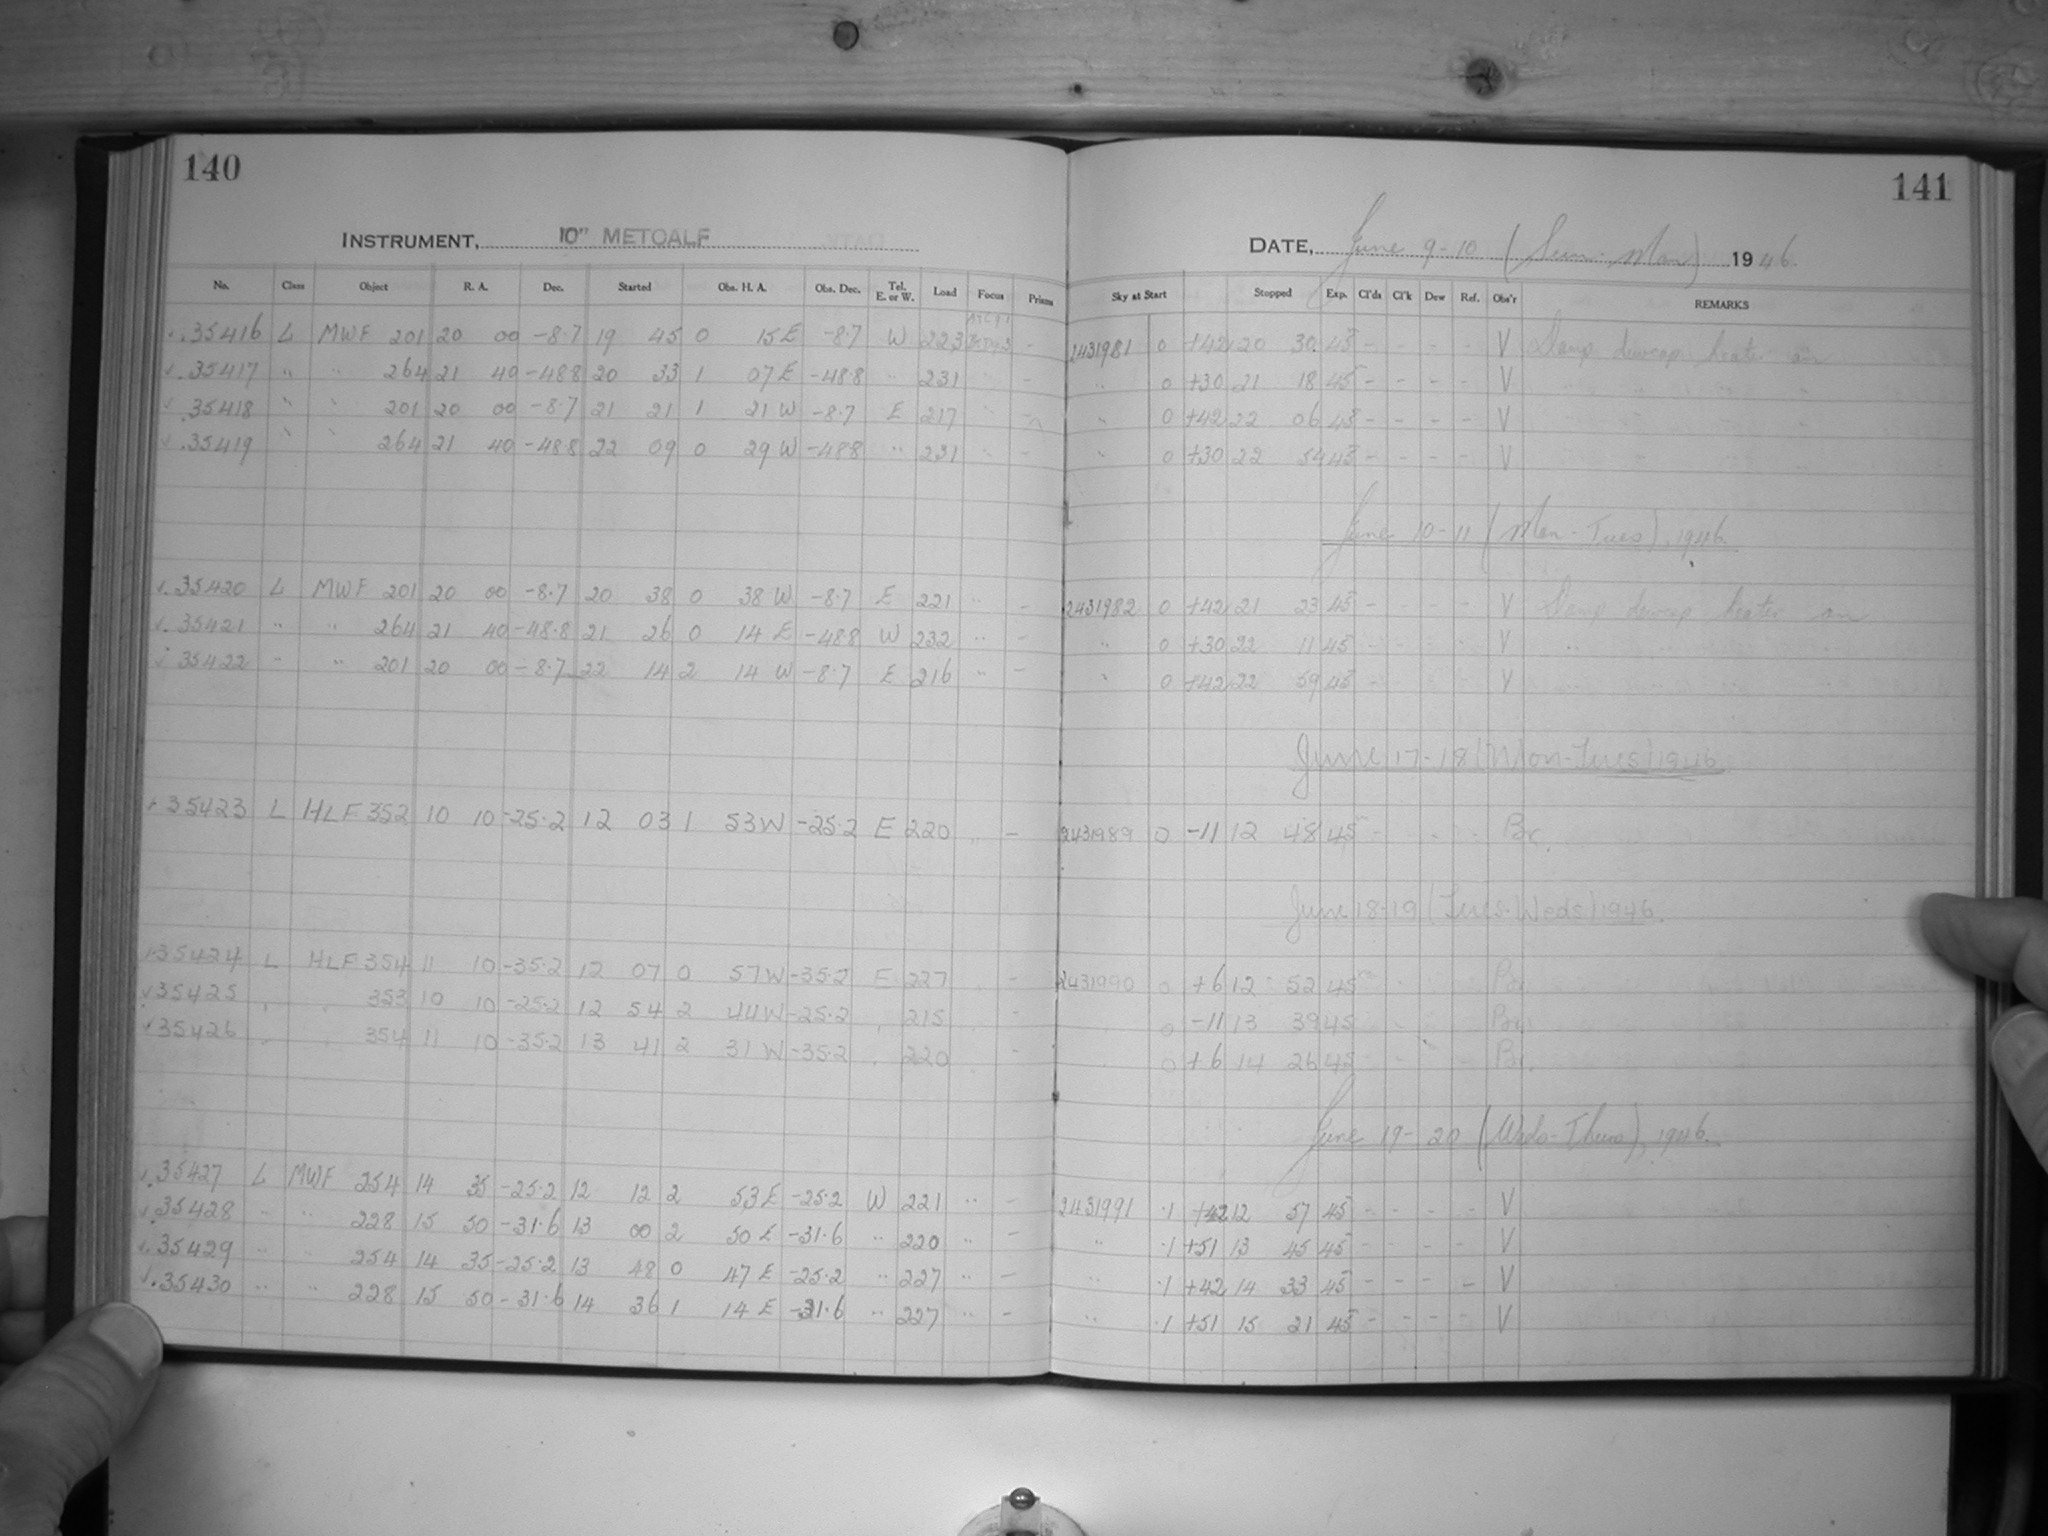 140
INSTRUMENT, 10" METCALF
No. Class Object R. A. Dec. Started Obs. H. A. Obs. Dec. Tel. E. or W. Load Focus Prisms
35416 L MWF 201 20 00 -8.7 19 45 0 15 E -8.7 W 223 -
35417 " " 264 21 40 -48.8 20 33 1 07 E -48.8 " 231 -
35418 " " 201 20 00 -8.7 21 21 1 21 W -8.7 E 217
35419 " " 264 21 40 -48.8 22 09 0 29 W -48.8 " 231 -
35420 L MWF 201 20 00 -8.7 20 38 0 38 W -8.7 E 221 " -
35421 " " 264 21 40 -48.8 21 26 0 14 E -48.8 W 232 " -
35422 " " 201 20 00 -8.7 22 14 2 14 W -8.7 E 216 " -
35423 L HLF 352 10 10 -25.2 12 03 1 53 W -25.2 E 220 -
35424 L HLF 354 11 10 -35.2 12 07 0 57 W -35.2 E 227 -
35425 353 10 10 -25.2 12 54 2 44 W -25.2 215 -
35426 354 11 10 -35.2 13 41 2 31 W -35.2 220 -
35427 L MWF 254 14 35 -25.2 12 12 2 53 E -25.2 W 221 " -
35428 " " 228 15 50 -31.6 13 00 2 50 E -31.6 " 220 " -
35429 " " 254 14 35 -25.2 13 48 0 47 E -25.2 " 227 " -
35430 " " 228 15 50 -31.6 14 36 1 14 E -31.6 " 227 " -
141
DATE, June 9-10 (Sun. Mon) 1946
Sky at Start Stopped Exp. Cl'ds Cl'k Dew Ref. Obs'r REMARKS
2431981 0 +42 20 30 45 - - - - V Damp dewcap heater on
" 0 +30 21 18 45 - - - - V
" 0 +42 22 06 45 - - - - V
" 0 +30 22 54 45 - - - - V
June 10-11 (Mon-Tues), 1946
2431982 0 +42 21 23 45 - - - - V Damp dewcap heater on
" 0 +30 22 11 45 - - - - V
" 0 +42 22 59 45 - - - - V
June 17-18 (Mon-Tues) 1946
2431989 0 -11 12 48 45 - - - - Bc.
June 18-19 (Tues-Weds) 1946.
2431990 0 +6 12 52 45 Bc
0 -11 13 39 45 Bc
0 +6 14 26 45 Bc.
June 19-20 (Weds-Thurs), 1946.
2431991 .1 +42 12 57 45 - - - - V
" .1 +51 13 45 45 - - - - V
" .1 +42 14 33 45 - - - - V
" .1 +51 15 21 45 - - - - V